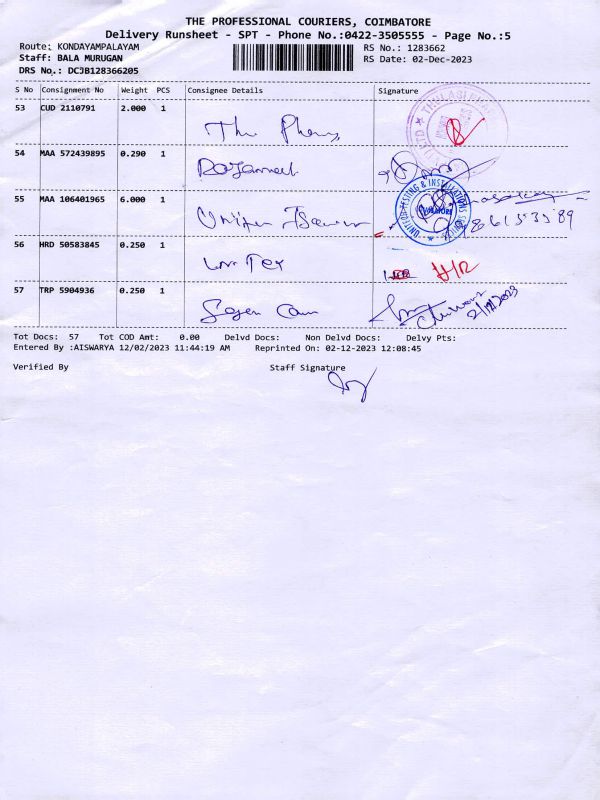 THE PROFESSIONAL COURIERS, COIMBATORE
Delivery Runsheet - SPT - Phone No.:0422-3505555 - Page No.:5
Route: KONDAYAMPALAYAM
RS No.: 1283662
Staff: BALA MURUGAN
RS Date: 02-Dec-2023
DRS No.: DCJB128366205
S No Consignment No Weight PCS Consignee Details Signature
53 CUD 2110791 2.000 1
54 MAA 572439895 0.290 1
55 MAA 106401965 6.000 1
UNITED TESTING & INSTALLATIONS
56 HRD 50583845 0.250 1
H/R
57 TRP 5904936 0.250 1
2/12/2023
Tot Docs: 57 Tot COD Amt: 0.00 Delvd Docs: Non Delvd Docs: Delvy Pts:
Entered By :AISWARYA 12/02/2023 11:44:19 AM Reprinted On: 02-12-2023 12:08:45
Verified By Staff Signature